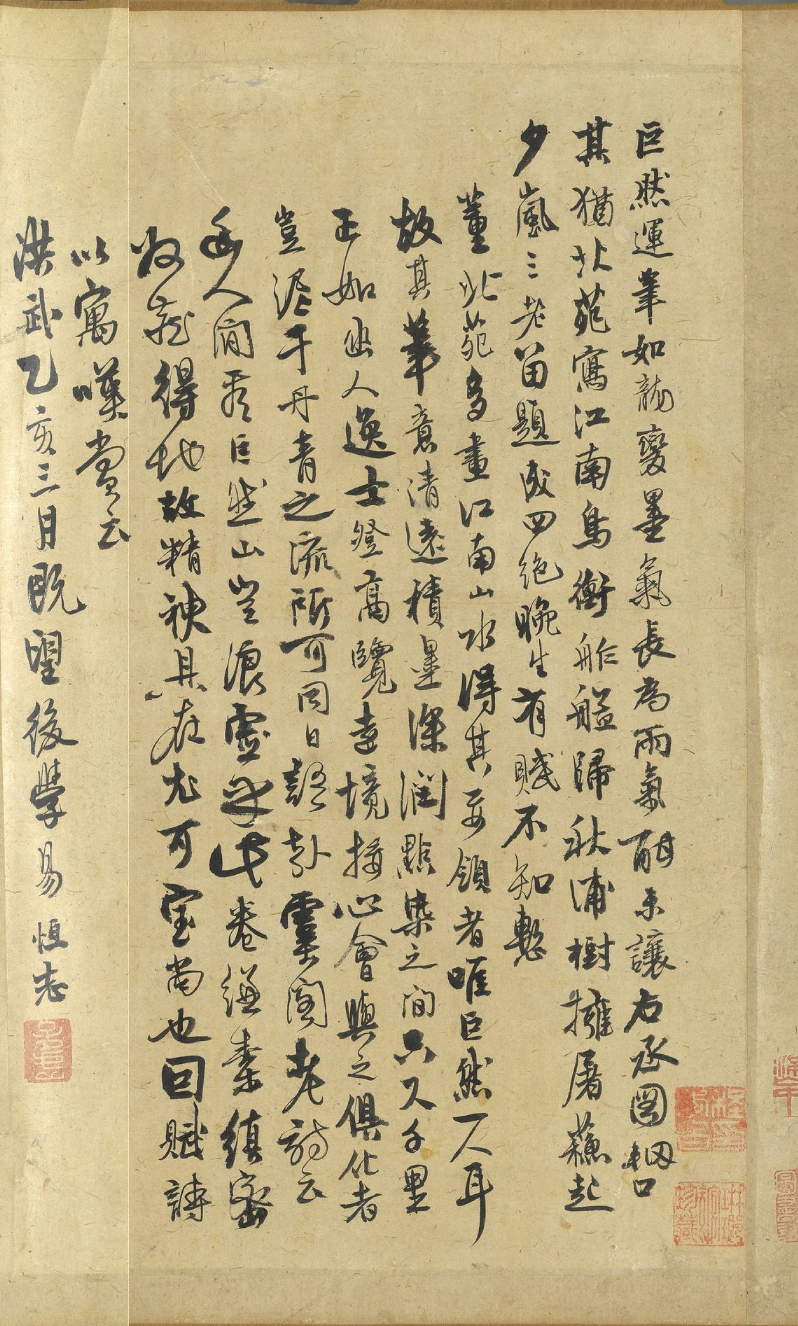 巨然運筆如龍變墨氣長為雨氣酣未讓右丞圖輞口
其猶北苑寫江南鳥衝舴艋歸秋浦樹擁屠蘇起
夕嵐三老留題成四絕晚生有賤不知慙
董北苑多畫江南山水得其要領者唯巨然一人耳
故其筆意清遠積墨深潤點染之間只又千里
正如幽人逸士登高覽遠境接心會與之俱化者
豈泥于丹青之流所可同日語哉雲閣老詩云
人間看巨然山豈浪虛此卷絹素縝密
收藏得地故精神具在尤可寶尚也因賦詩
以寓嘆賞云
洪武乙亥三月既望後學易恒志